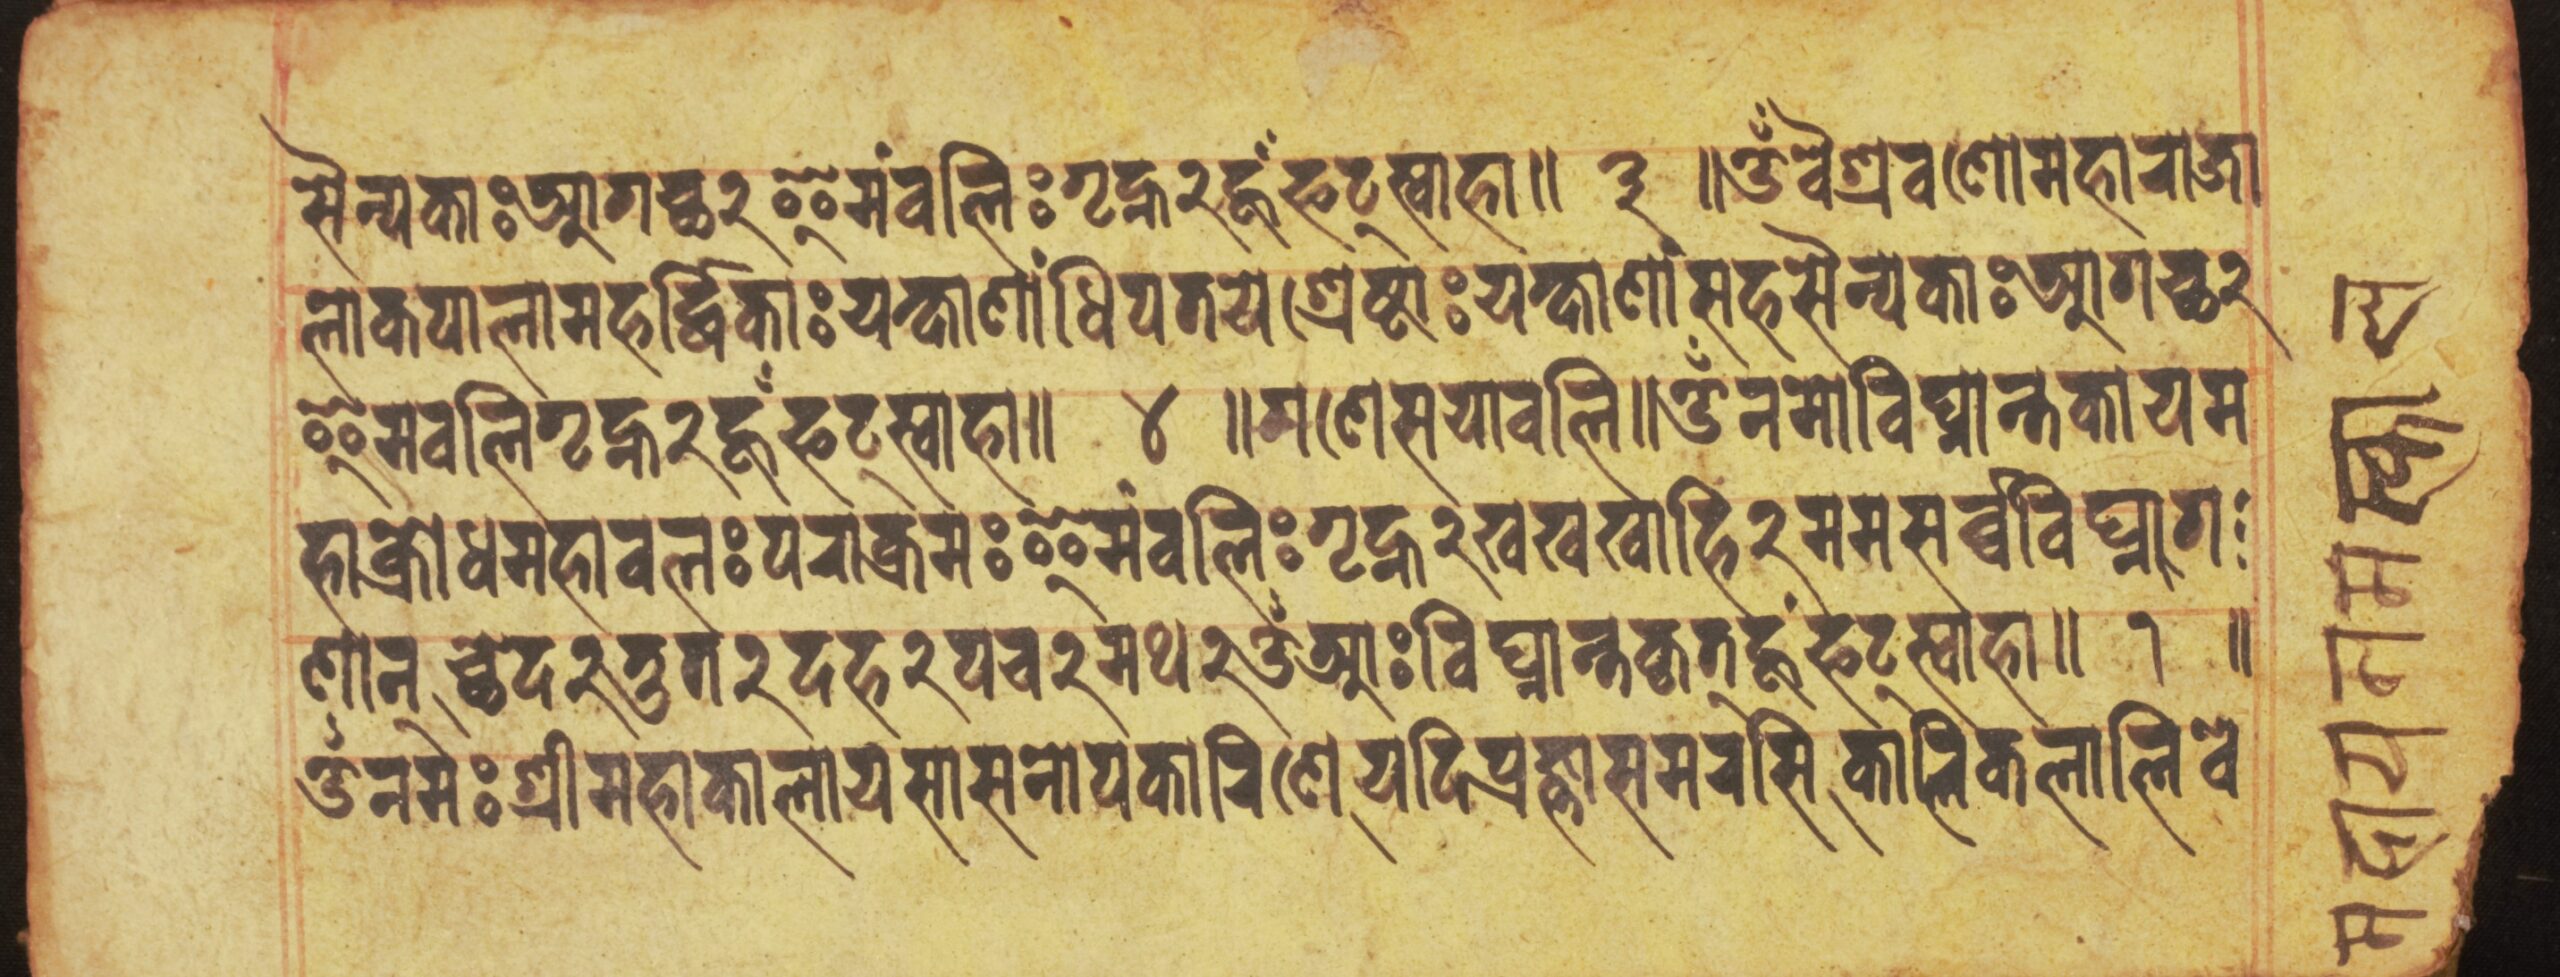 सैन्यकाः आगच्छ२ इमं वलिः गृह्न२ हूँ फट् स्वाहा॥ ३ ॥ ॐ वैश्रवणो महाराजा
लोकपाला महर्द्धिकाः यक्षाणां धिपतये श्रेष्टाः यक्षाणां सह सैन्यकाः आगच्छ२
इम वलि गृह्न२ हूँ फट् स्वाहा॥ ४ ॥ गणेसया वलि॥ ॐ नमो विघ्नान्तकाय म
हाक्रोध महावलः पराक्रमः इमं वलिः गृह्न२ ख ख खाहि२ मम सर्व्वविघ्नाग
णान् च्छेद२ तुत२ दह२ पच२ मथ२ ॐ आः विघ्नान्तकृत् हूँ फट् स्वाहा॥ १ ॥
ॐ नमः श्रीमहाकालाय सासनोपकारिणे यदि प्रज्ञा समरसि कालिकलालि वे